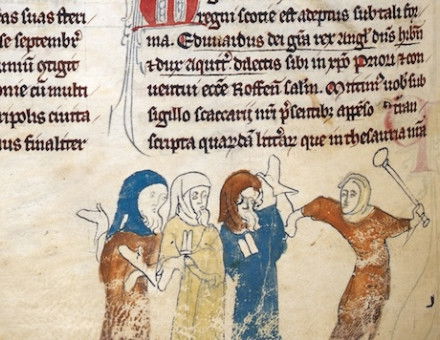 cas suas fieri
se septembr̄
ortigit
onie cū multi
ripolis ciuita
us finaliter
regni scotie est adeptus sub tali for
ma. Edwardus dei gr̄a rex Angl' dn̄s hib'n
& dux Aquit' dilectis sibi in xp̄o Priori & con
uentui ecc̄e Roffen̄ salm̄. Mittim' uob sub
sigillo scaccarij nr̄i p̄sentib; app̄nso
scripta quarūdā litt̄ar que in thesauria nr̄a